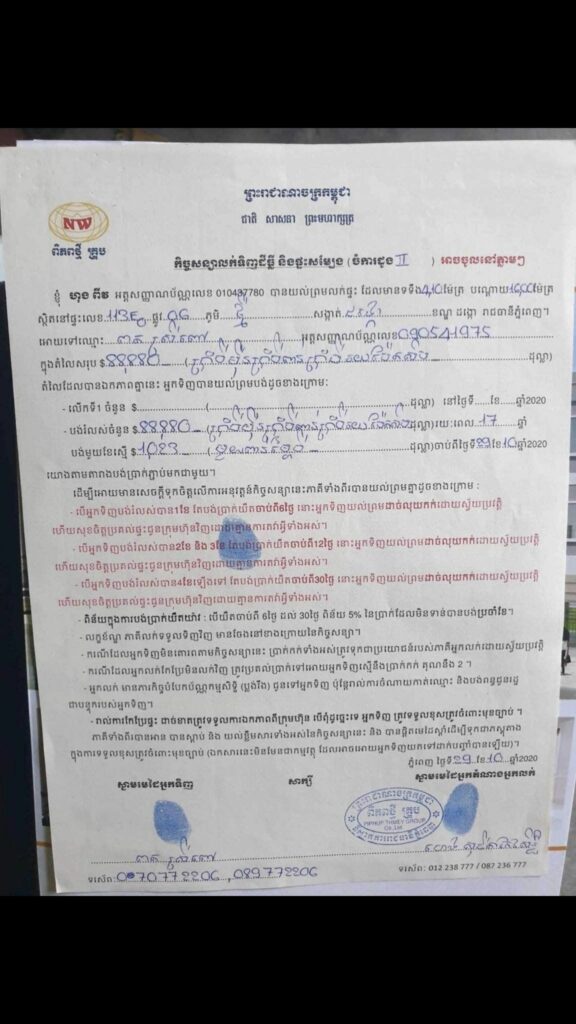 ព្រះរាជាណាចក្រកម្ពុជា
ជាតិ សាសនា ព្រះមហាក្សត្រ
NW
ពិភពថ្មី គ្រុប
កិច្ចសន្យាលក់ទិញដីធ្លី និងផ្ទះសម្បែង (ចំការដូង II ) អាចចូលនៅភ្លាមៗ
ខ្ញុំ ហុង ពីវ អត្តសញ្ញាណប័ណ្ណលេខ 010437780 បានយល់ព្រមលក់ផ្ទះ ដែលមានទទឹង 4,10 ម៉ែត្រ បណ្តោយ ម៉ែត្រ
ស្ថិតនៅផ្ទះលេខ 113E ផ្លូវ ភូមិ ថ្មី សង្កាត់ ដង្កោ ខណ្ឌ ដង្កោ រាជធានីភ្នំពេញ។
អោយទៅឈ្មោះ អត្តសញ្ញាណប័ណ្ណលេខ 090541975
ក្នុងតំលៃសរុប $ 88880 ( ដុល្លា)
តំលៃដែលបានឯកភាពគ្នានេះ អ្នកទិញបានយល់ព្រមបង់ដូចខាងក្រោម:
- លើកទី1 ចំនួន $ ( ដុល្លា) នៅថ្ងៃទី ខែ ឆ្នាំ2020
- បង់រំលស់ចំនួន $ 88880 ( ដុល្លា) រយៈពេល 17 ឆ្នាំ
បង់មួយខែស្មើ $ 1023 ( ដុល្លា) ចាប់ពីថ្ងៃ 29 ខែ 10 ឆ្នាំ2020
យោងតាមតារាងបង់ប្រាក់ភ្ជាប់មកជាមួយ។
ដើម្បីអោយមានសេចក្តីទុកចិត្តលើការអនុវត្តន៍កិច្ចសន្យានេះភាគីទាំងពីរបានយល់ព្រមគ្នាដូចខាងក្រោម :
- បើអ្នកទិញបង់រំលស់បាន1ខែ តែបង់ប្រាក់យឺតចាប់ពី6ថ្ងៃ នោះអ្នកទិញយល់ព្រមដាច់លុយកក់ដោយស្វ័យប្រវត្តិ
ហើយសុខចិត្តប្រគល់ផ្ទះជូនក្រុមហ៊ុនវិញដោយគ្មានការតវ៉ាអ្វីទាំងអស់។
- បើអ្នកទិញបង់រំលស់បាន2ខែ និង 3ខែ តែបង់ប្រាក់យឺតចាប់ពី12ថ្ងៃ នោះអ្នកទិញយល់ព្រមដាច់លុយកក់ដោយស្វ័យប្រវត្តិ
ហើយសុខចិត្តប្រគល់ផ្ទះជូនក្រុមហ៊ុនវិញដោយគ្មានការតវ៉ាអ្វីទាំងអស់។
- បើអ្នកទិញបង់រំលស់បាន4ខែឡើងទៅ តែបង់ប្រាក់យឺតចាប់ពី30ថ្ងៃ នោះអ្នកទិញយល់ព្រមដាច់លុយកក់ដោយស្វ័យប្រវត្តិ
ហើយសុខចិត្តប្រគល់ផ្ទះជូនក្រុមហ៊ុនវិញដោយគ្មានការតវ៉ាអ្វីទាំងអស់។
- ពិន័យក្នុងការបង់ប្រាក់យឺតយ៉ាវ : បើយឺតចាប់ពី 6ថ្ងៃ ដល់ 30ថ្ងៃ ពិន័យ 5% នៃប្រាក់ដែលមិនទាន់បានបង់ប្រចាំខែ។
- លក្ខខ័ណ្ឌ ភាគីលក់ទទួលទិញវិញ មានចែងនៅខាងក្រោយនៃកិច្ចសន្យា។
- ករណីដែលអ្នកទិញមិនគោរពតាមកិច្ចសន្យានេះ ប្រាក់កក់ទាំងអស់ត្រូវទុកជាប្រយោជន៍របស់ភាគីអ្នកលក់ដោយស្វ័យប្រវត្តិ
- ករណីដែលអ្នកលក់កែប្រែមិនលក់វិញ ត្រូវប្រគល់ប្រាក់ទៅអោយអ្នកទិញស្មើនឹងប្រាក់កក់ គុណនឹង 2 ។
- អ្នកលក់ មានភារកិច្ចបំបែកប័ណ្ណកម្មសិទ្ធិ (ប្លង់រឹង) ជូនទៅអ្នកទិញ ប៉ុន្តែរាល់ការចំណាយកាត់ឈ្មោះ និងបង់ពន្ធជូនរដ្ឋ
ជាបន្ទុករបស់អ្នកទិញ។
- រាល់ការកែប្រែផ្ទះ ដាច់ខាតត្រូវទទួលការឯកភាពពីក្រុមហ៊ុន បើពុំដូច្នេះទេ អ្នកទិញ ត្រូវទទួលខុសត្រូវចំពោះមុខច្បាប់ ។
ភាគីទាំងពីរបានអាន បានស្តាប់ និង យល់ខ្លឹមសារទាំងអស់នៃកិច្ចសន្យានេះ និង បានផ្តិតមេដៃស្តាំដើម្បីទុកជាភស្តុតាង
ក្នុងការទទួលខុសត្រូវចំពោះមុខច្បាប់ (ឯកសារនេះមិនមែនជាកម្មវត្ថុ ដែលអាចអោយអ្នកទិញយកទៅដាក់បញ្ចាំបានឡើយ)។
ភ្នំពេញ ថ្ងៃទី 29 ខែ 10 ឆ្នាំ2020
ស្នាមមេដៃអ្នកទិញ សាក្សី ស្នាមមេដៃអ្នកតំណាងអ្នកលក់
ពិភពថ្មី គ្រុប
PIPHUP THMEY GROUP
CO.,Ltd
ទូរស័ព្ទ: 070772206 , 089772206
ទូរស័ព្ទ: 012 238 777 / 087 236 777